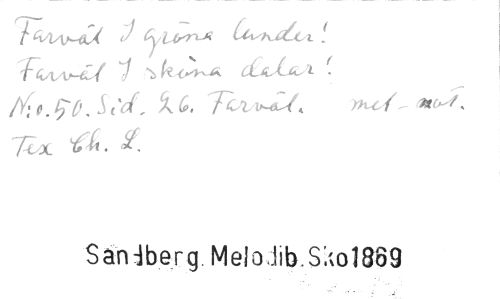 Farväl I gröna lunder!
Farväl I sköna dalar!
N:o. 50. Sid. 26. Farväl. mel-not.
Tex Ch. L.
Sandberg. Melodib. Sko1869